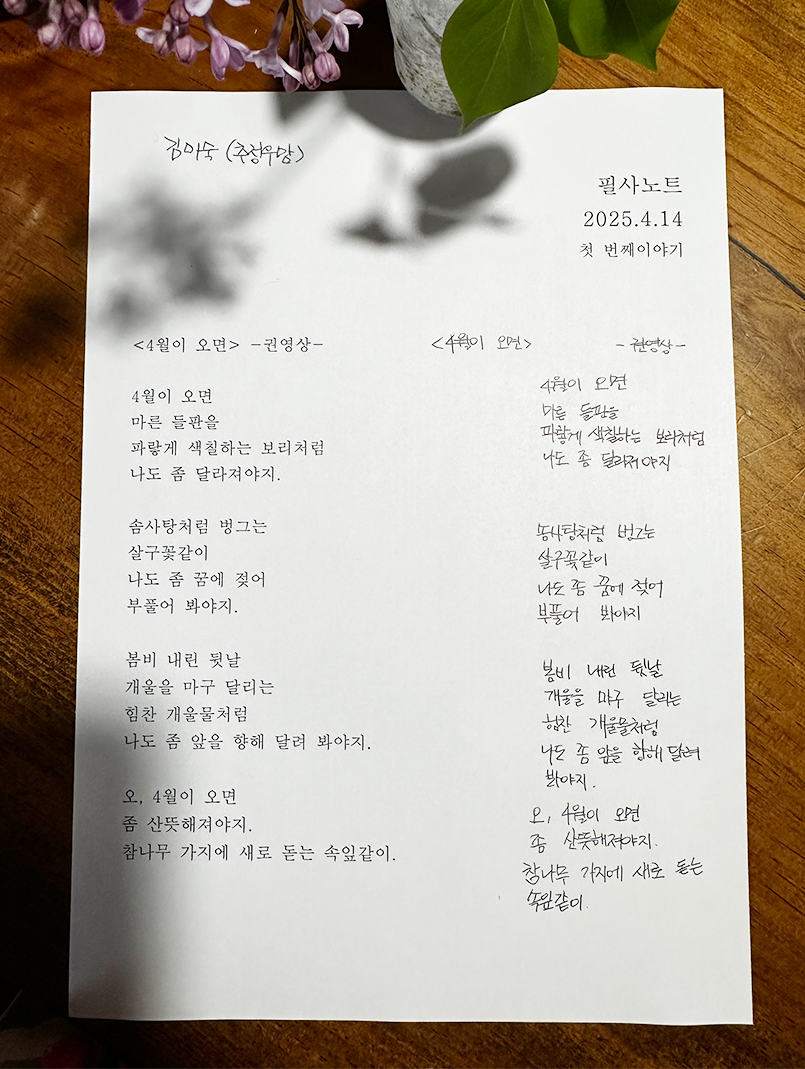 김미숙 (추정우맘)
필사노트
2025.4.14
첫 번째이야기
<4월이 오면> -권영상-
4월이 오면
마른 들판을
파랗게 색칠하는 보리처럼
나도 좀 달라져야지.
솜사탕처럼 벙그는
살구꽃같이
나도 좀 꿈에 젖어
부풀어 봐야지.
봄비 내린 뒷날
개울을 마구 달리는
힘찬 개울물처럼
나도 좀 앞을 향해 달려 봐야지.
오, 4월이 오면
좀 산뜻해져야지.
참나무 가지에 새로 돋는 속잎같이.
<4월이 오면> -권영상-
4월이 오면
마른 들판을
파랗게 색칠하는 보리처럼
나도 좀 달라져야지
솜사탕처럼 벙그는
살구꽃같이
나도 좀 꿈에 젖어
부풀어 봐야지
봄비 내린 뒷날
개울을 마구 달리는
힘찬 개울물처럼
나도 좀 앞을 향해 달려
봐야지.
오, 4월이 오면
좀 산뜻해져야지.
참나무 가지에 새로 돋는
속잎같이.